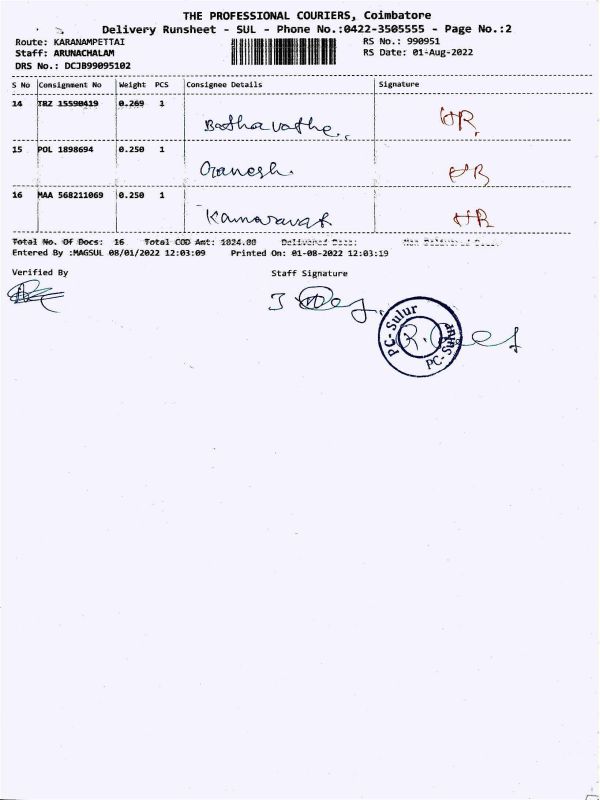 THE PROFESSIONAL COURIERS, Coimbatore
Delivery Runsheet - SUL - Phone No.:0422-3505555 - Page No.:2
Route: KARANAMPETTAI RS No.: 990951
Staff: ARUNACHALAM RS Date: 01-Aug-2022
DRS No.: DCJB99095102
S No Consignment No Weight PCS Consignee Details Signature
14 TRZ 15590419 0.269 1
15 POL 1898694 0.250 1 Ganesh.
16 MAA 568211069 0.250 1
Total No. Of Docs: 16 Total COD Amt: 1024.00 Delivered Docs:
Entered By :MAGSUL 08/01/2022 12:03:09 Printed On: 01-08-2022 12:03:19
Verified By Staff Signature
PC-Sulur
PC-Sulur